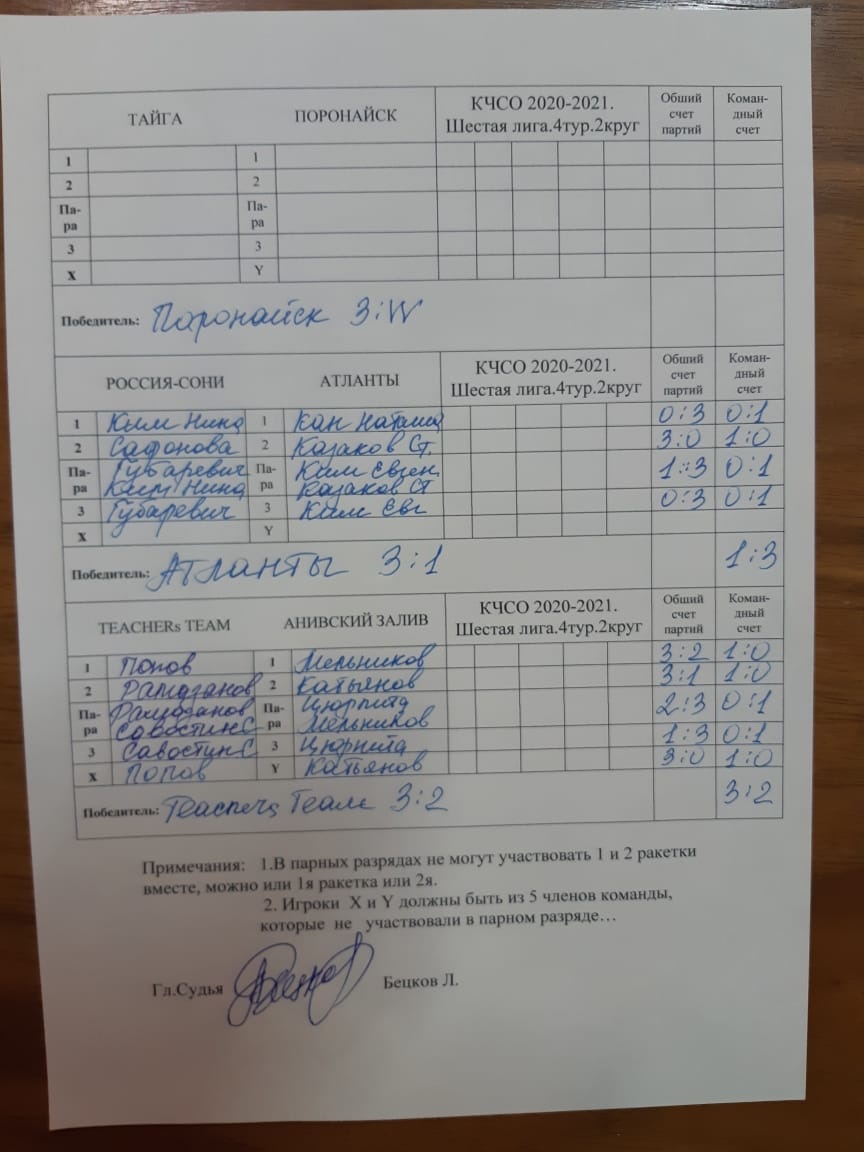 ТАЙГА ПОРОНАЙСК КЧСО 2020-2021. Шестая лига.4тур.2круг Общий счет партий Коман-дный счет
1 1
2 2
Па-ра Па-ра
3 3
X Y
Победитель: Поронайск 3:W
РОССИЯ-СОНИ АТЛАНТЫ КЧСО 2020-2021. Шестая лига.4тур.2круг Общий счет партий Коман-дный счет
1 Ким Нина 1 Кан Наташа 0:3 0:1
2 Сафонова 2 Казаков Ст. 3:0 1:0
Па-ра Губаревич Па-ра Ким Евген 1:3 0:1
Ким Нина Казаков Ст
3 Губаревич 3 Ким Евг 0:3 0:1
X Y
Победитель: Атланты 3:1 1:3
TEACHERs TEAM АНИВСКИЙ ЗАЛИВ КЧСО 2020-2021. Шестая лига.4тур.2круг Общий счет партий Коман-дный счет
1 Попов 1 Мельников 3:2 1:0
2 Рамазанов 2 Катьянов 3:1 1:0
Па-ра Рамазанов Па-ра 2:3 0:1
Савостин С Мельников
3 Савостин С 3 1:3 0:1
X Попов Y Катьянов 3:0 1:0
Победитель: Teachers Team 3:2 3:2
Примечания: 1.В парных разрядах не могут участвовать 1 и 2 ракетки
вместе, можно или 1я ракетка или 2я.
2. Игроки X и Y должны быть из 5 членов команды,
которые не участвовали в парном разряде…
Гл.Судья Бецков Л.